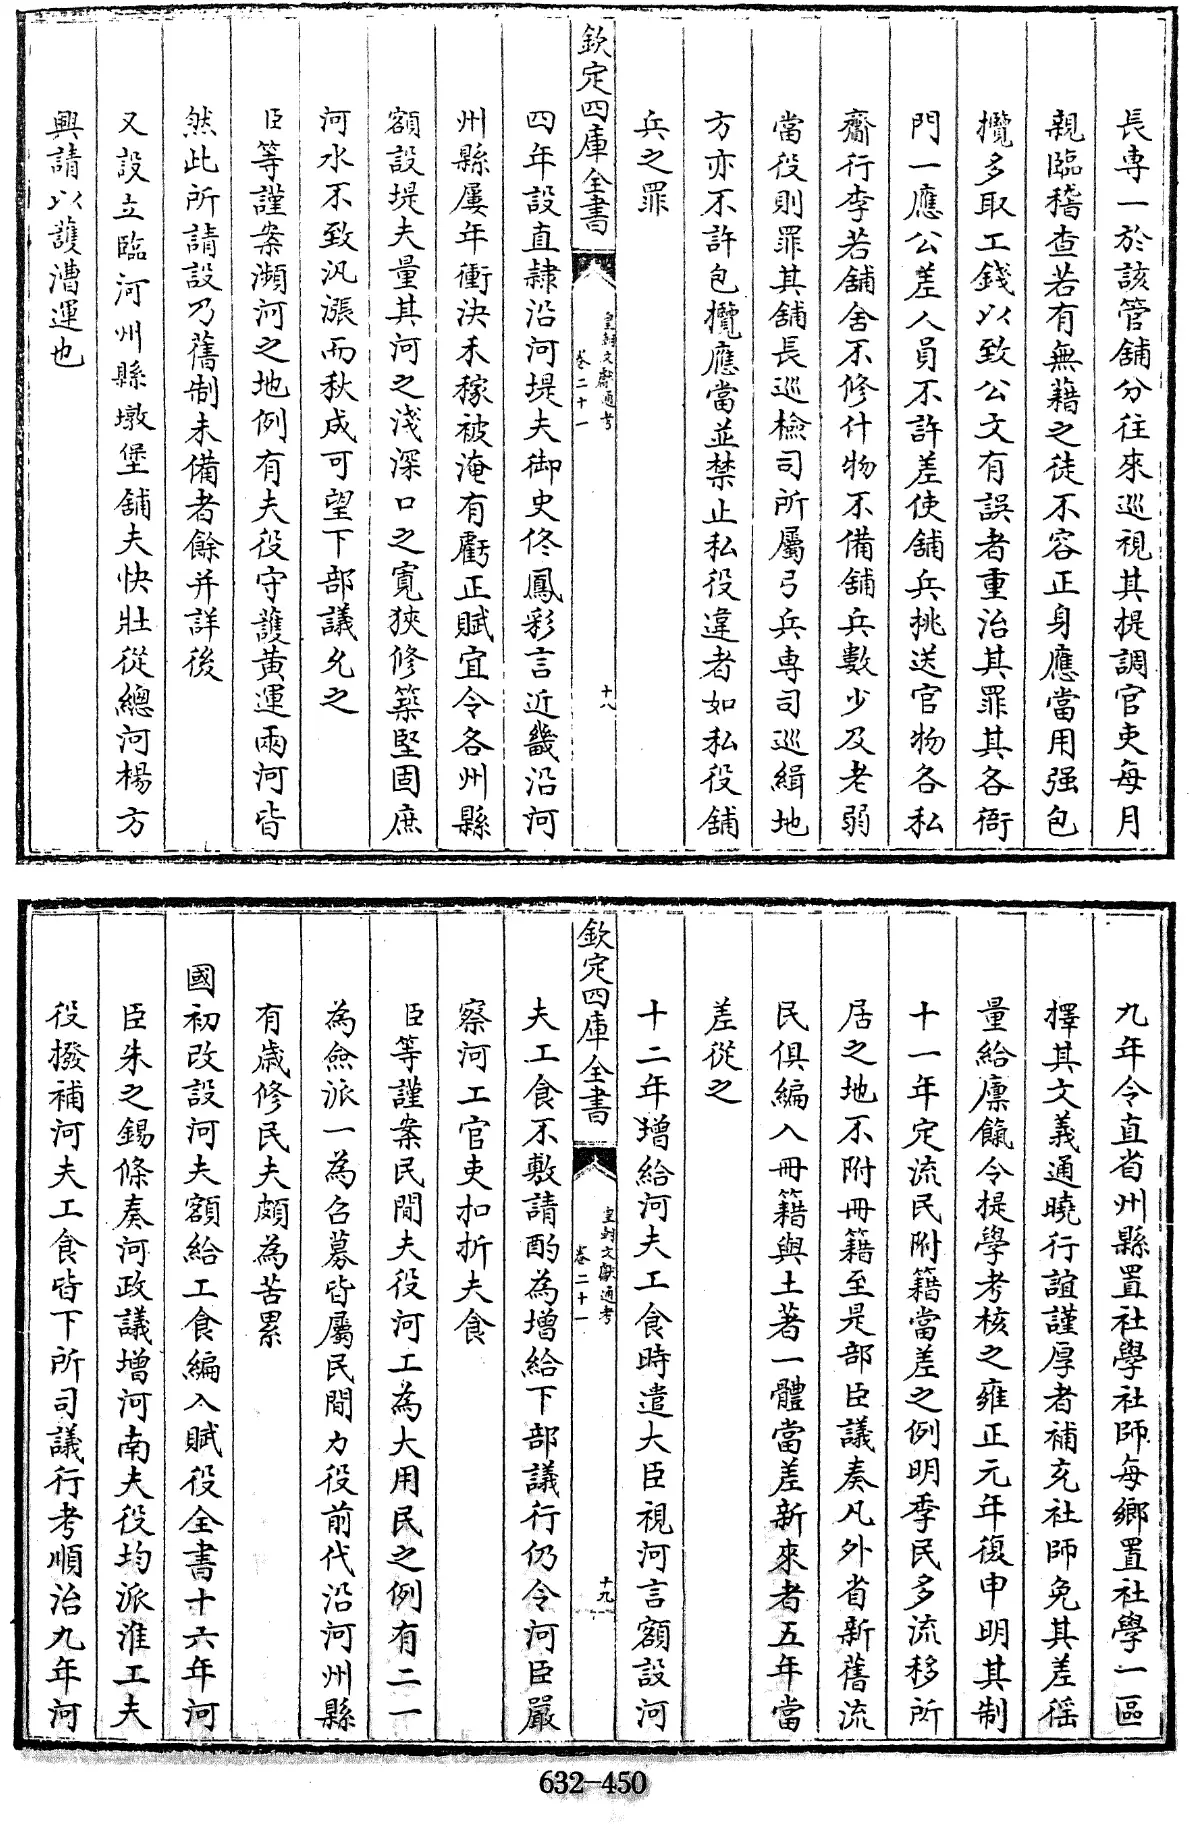 長専一於該管舖分往來巡視其提調官吏每月
親臨稽查若有無藉之徒不容正身應當用强包
攬多取工錢以致公文有誤者重治其罪其各衙
門一應公差人員不許差使舖兵挑送官物各私
齎行李若舖舍不修什物不備舖兵數少及老弱
當役則罪其舖長巡檢司所屬弓兵専司巡緝地
方亦不許包攬應當並禁止私役違者如私役舖
兵之罪
欽定四庫全書
皇朝文獻通考
卷二十一
十八
四年設直隷沿河堤夫御史佟鳳彩言近畿沿河
州縣屢年衝決禾稼被淹有虧正賦宜令各州縣
額設堤夫量其河之淺深口之寛狹修築堅固庶
河水不致汎漲而秋成可望下部議允之
臣等謹案瀕河之地例有夫役守護黄運兩河皆
然此所請設乃舊制未備者餘并詳後
又設立臨河州縣墩堡舖夫快壯從總河楊方
興請以護漕運也
九年令直省州縣置社學社師每鄉置社學一區
擇其文義通曉行誼謹厚者補充社師免其差徭
量給廪餼令提學考核之雍正元年復申明其制
十一年定流民附籍當差之例明季民多流移所
居之地不附冊籍至是部臣議奏凡外省新舊流
民俱編入冊籍與土著一體當差新來者五年當
差從之
十二年增給河夫工食時遣大臣視河言額設河
欽定四庫全書
皇朝文獻通考
卷二十一
十九
夫工食不敷請酌為增給下部議行仍令河臣嚴
察河工官吏扣折夫食
臣等謹案民間夫役河工為大用民之例有二一
為僉派一為召募皆屬民間力役前代沿河州縣
有歲修民夫頗為苦累
國初改設河夫額給工食編入賦役全書十六年河
臣朱之錫條奏河政議增河南夫役均派淮工夫
役撥補河夫工食皆下所司議行考順治九年河
632-450